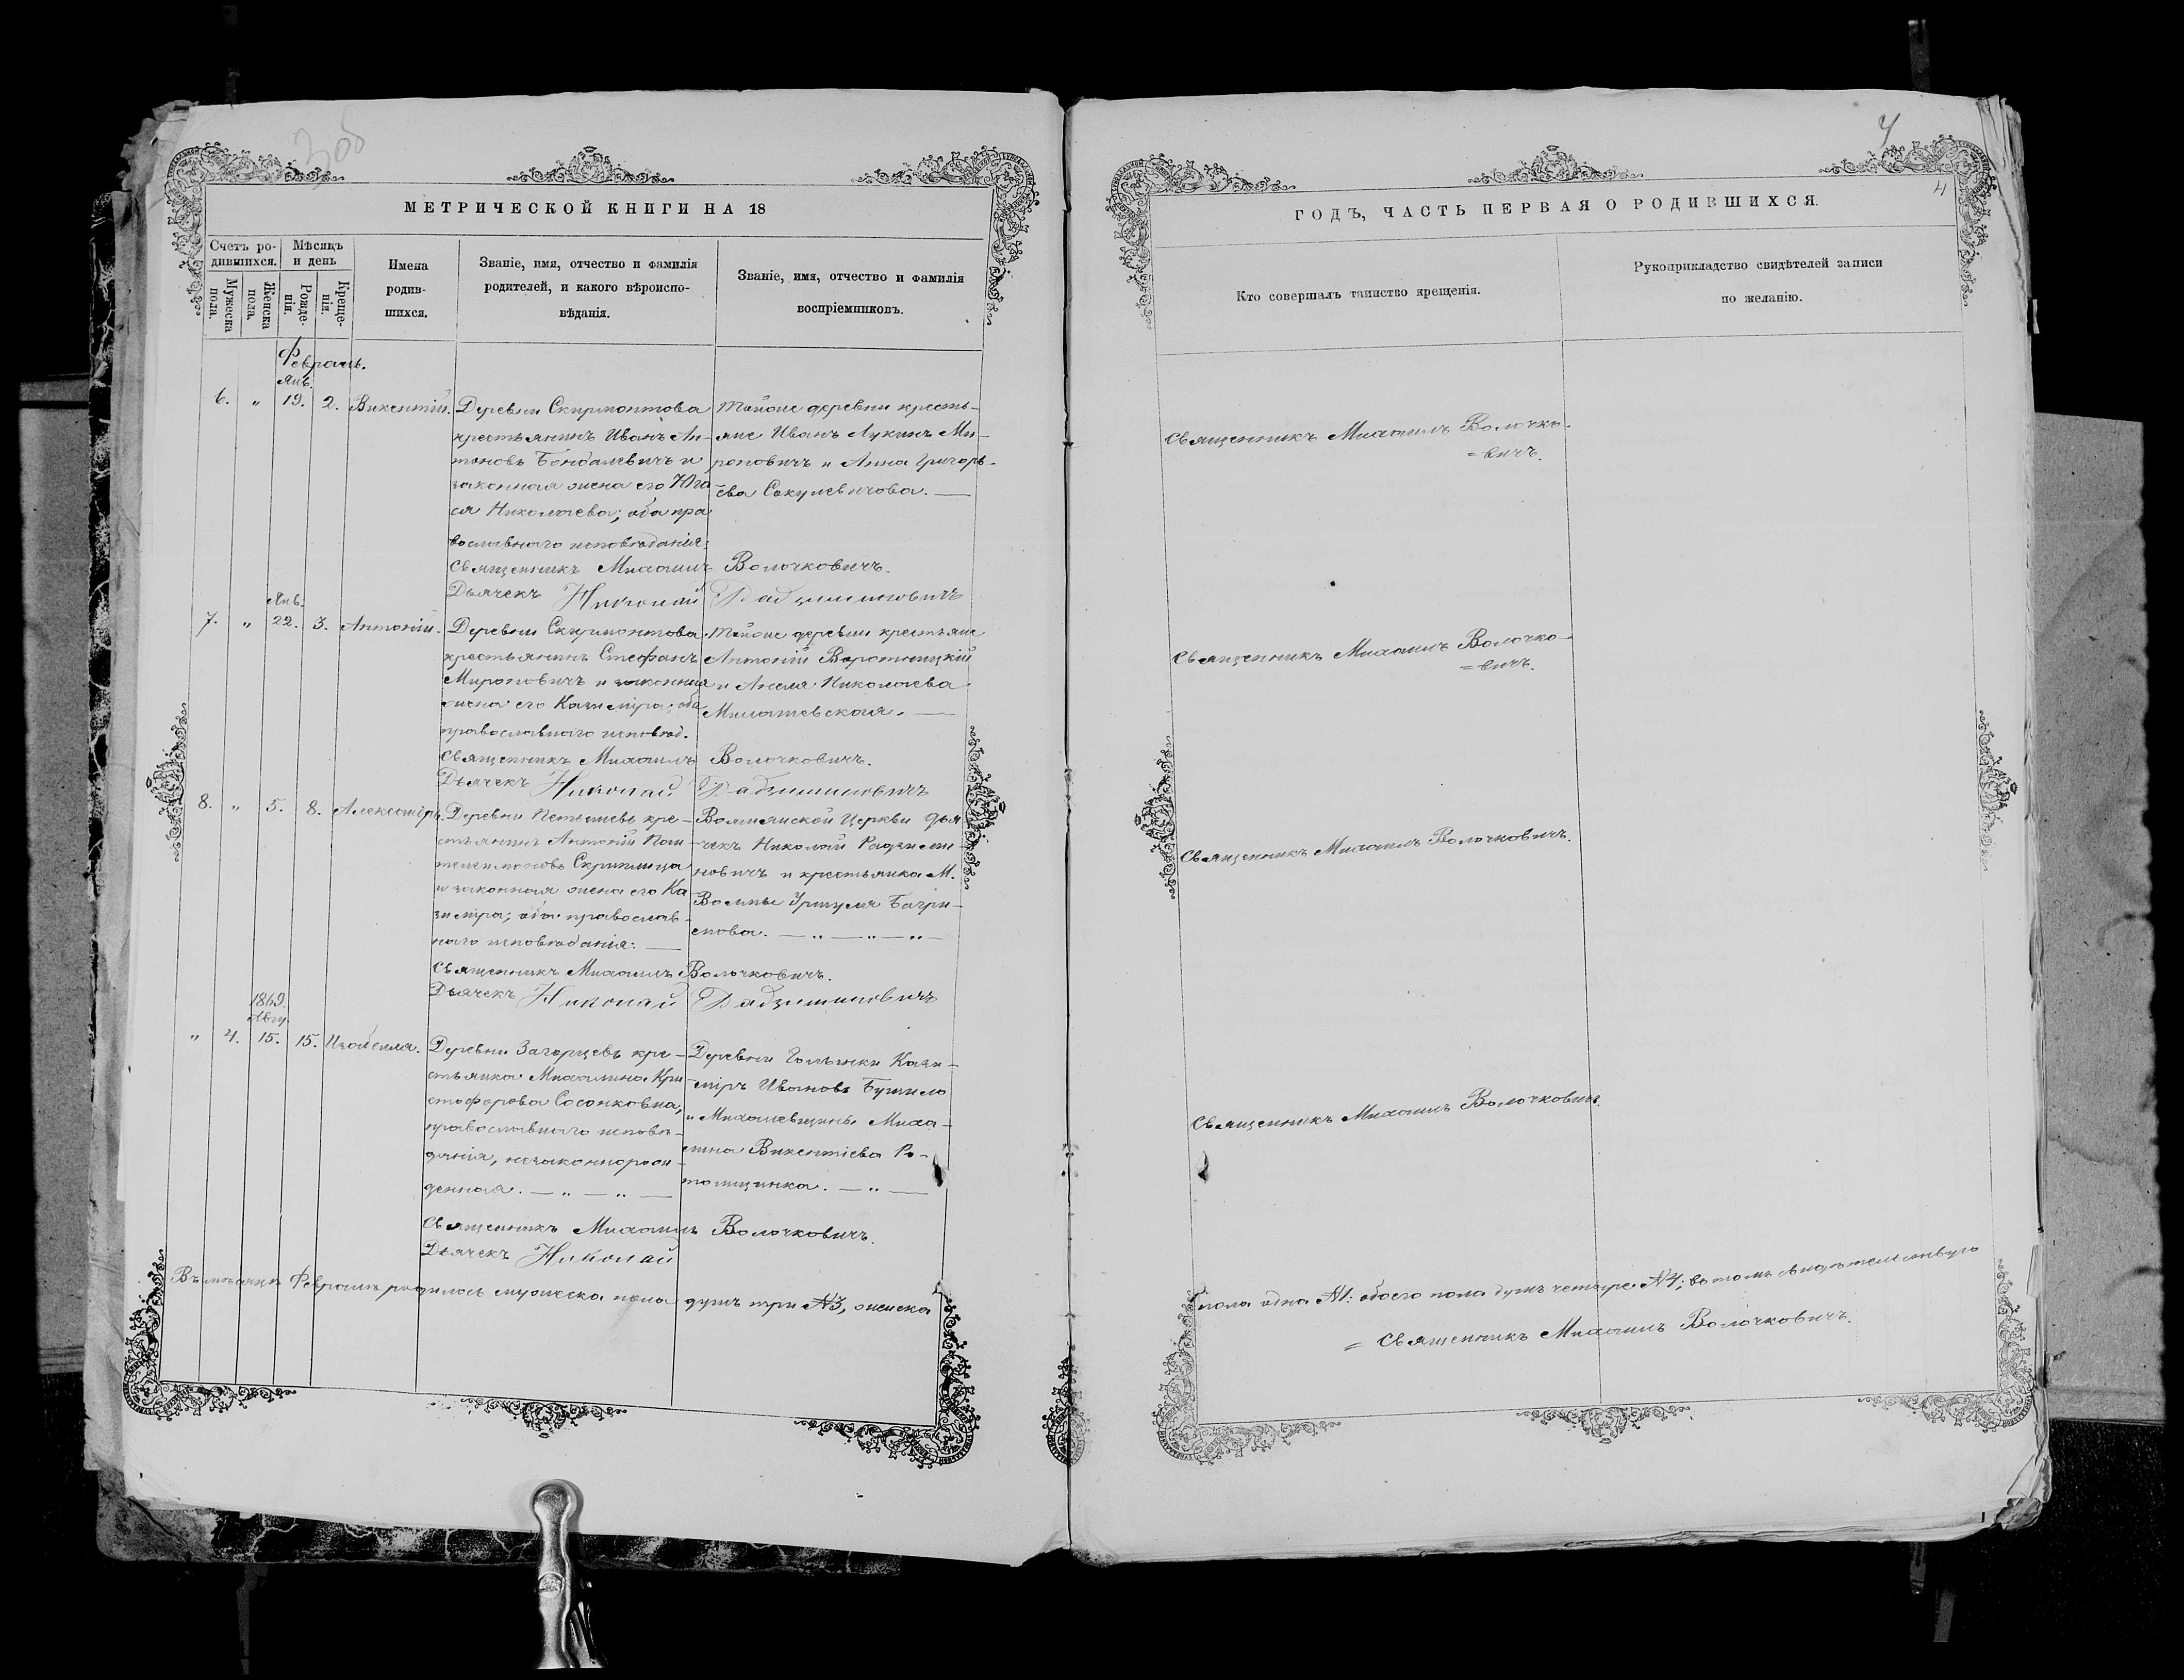 3об
МЕТРИЧЕСКОЙ КНИГИ НА 18
Счетъ ро-
дившихся.
Мѣсяцъ
и день
Мужеска
пола.
Женска
пола.
Рожде-
нія.
Креще-
нія.
Имена
родив-
шихся.
Званіе, имя, отчество и фамилія
родителей, и какого вѣроиспо-
вѣданія.
Званіе, имя, отчество и фамилія
воспріемниковъ.
Февраль.
Янв.
6. " 19. 2. Викентій.
Деревни Скирмонтова
крестьянинъ Иванъ Ан-
тоновъ Бондалевичъ и
законная жена его Юга
ся Николаева; оба пра
вославнаго исповѣданія;
Тойже деревни кресть-
яне Иванъ Лукинъ Ми-
роновичъ и Анна Григорь-
ева Сакулевичова.
Священникъ Михаилъ Волочковичъ.
Дьячекъ Николай Радзиминовичъ
Янв.
7. " 22. 3. Антоній.
Деревни Скирмонтова
крестьянинъ Стефанъ
Мироновичъ и законная
жена его Казиміра; оба
православнаго исповѣд.
Тойже деревни крестьяне
Антоній Воротницкій
и Анеля Николаева
Милашевская.
Священникъ Михаилъ Волочковичъ.
Дьячекъ Николай Радзиминовичъ
8. " 5. 8. Александръ.
Деревни кре-
стьянинъ Антоній Пан-
телеимоновъ Скриплица
и законная жена его Ка
зиміра; оба православ-
наго исповѣданія.
Волмянской Церкви дья
чекъ Николай Радзими-
новичъ и крестьянка М.
Волмы Урщуля Багри-
снова. — " — " — " —
Священникъ Михаилъ Волочковичъ.
Дьячекъ Николай Радзиминовичъ
1869.
Авгу.
" 4. 15. 15. Изабелла.
Деревни Загорцевъ кре-
стьянка Михалина Кри
стофорова Сосонковна,
православнаго исповѣ-
данія, незаконнорож-
денная. — " — " —
Деревни Голынки Кази-
міръ Ивановъ Бушило
и Миха-
лина Викентіева Ро-
толщинка. — " —
Священникъ Михаилъ Волочковичъ.
Дьячекъ Николай
Въ мѣсяцѣ Февралѣ родилось мужеска пола душъ три №3, женска
4
4
ГОДЪ, ЧАСТЬ ПЕРВАЯ О РОДИВШИХСЯ.
Кто совершалъ таинство крещенія.
Рукоприкладство свидѣтелей записи
по желанію.
Священникъ Михаилъ Волочко-
=вичъ.
Священникъ Михаилъ Волочко-
=вичъ.
Священникъ Михаилъ Волочковичъ.
Священникъ Михаилъ Волочковичъ.
пола одна №1: обоего пола душъ четыре №4; въ томъ свидѣтельствую
= Священникъ Михаилъ Волочковичъ.